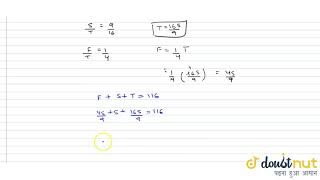 S/T = 9/16   T = 16S/9
F/T = 1/4   F = 1/4 T
= 1/4 (16S/9) = 4S/9
F + S + T = 116
4S/9 + S + 16S/9 = 116
doubtnut
पढ़ना हुआ आसान